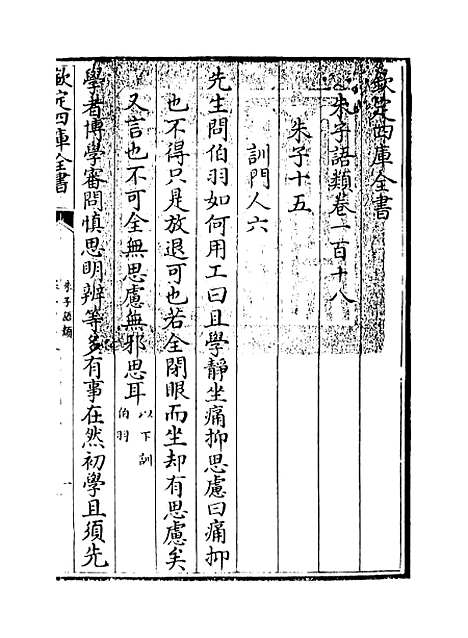 欽定四庫全書
朱子語類卷一百十八
朱子十五
訓門人六
先生問伯羽如何用工曰且學靜坐痛抑思慮曰痛抑
也不得只是放退可也若全閉眼而坐却有思慮矣
又言也不可全無思慮無邪思耳以下訓伯羽
學者博學審問慎思明辨等多有事在然初學且須先
欽定四庫全書
朱子語類
一